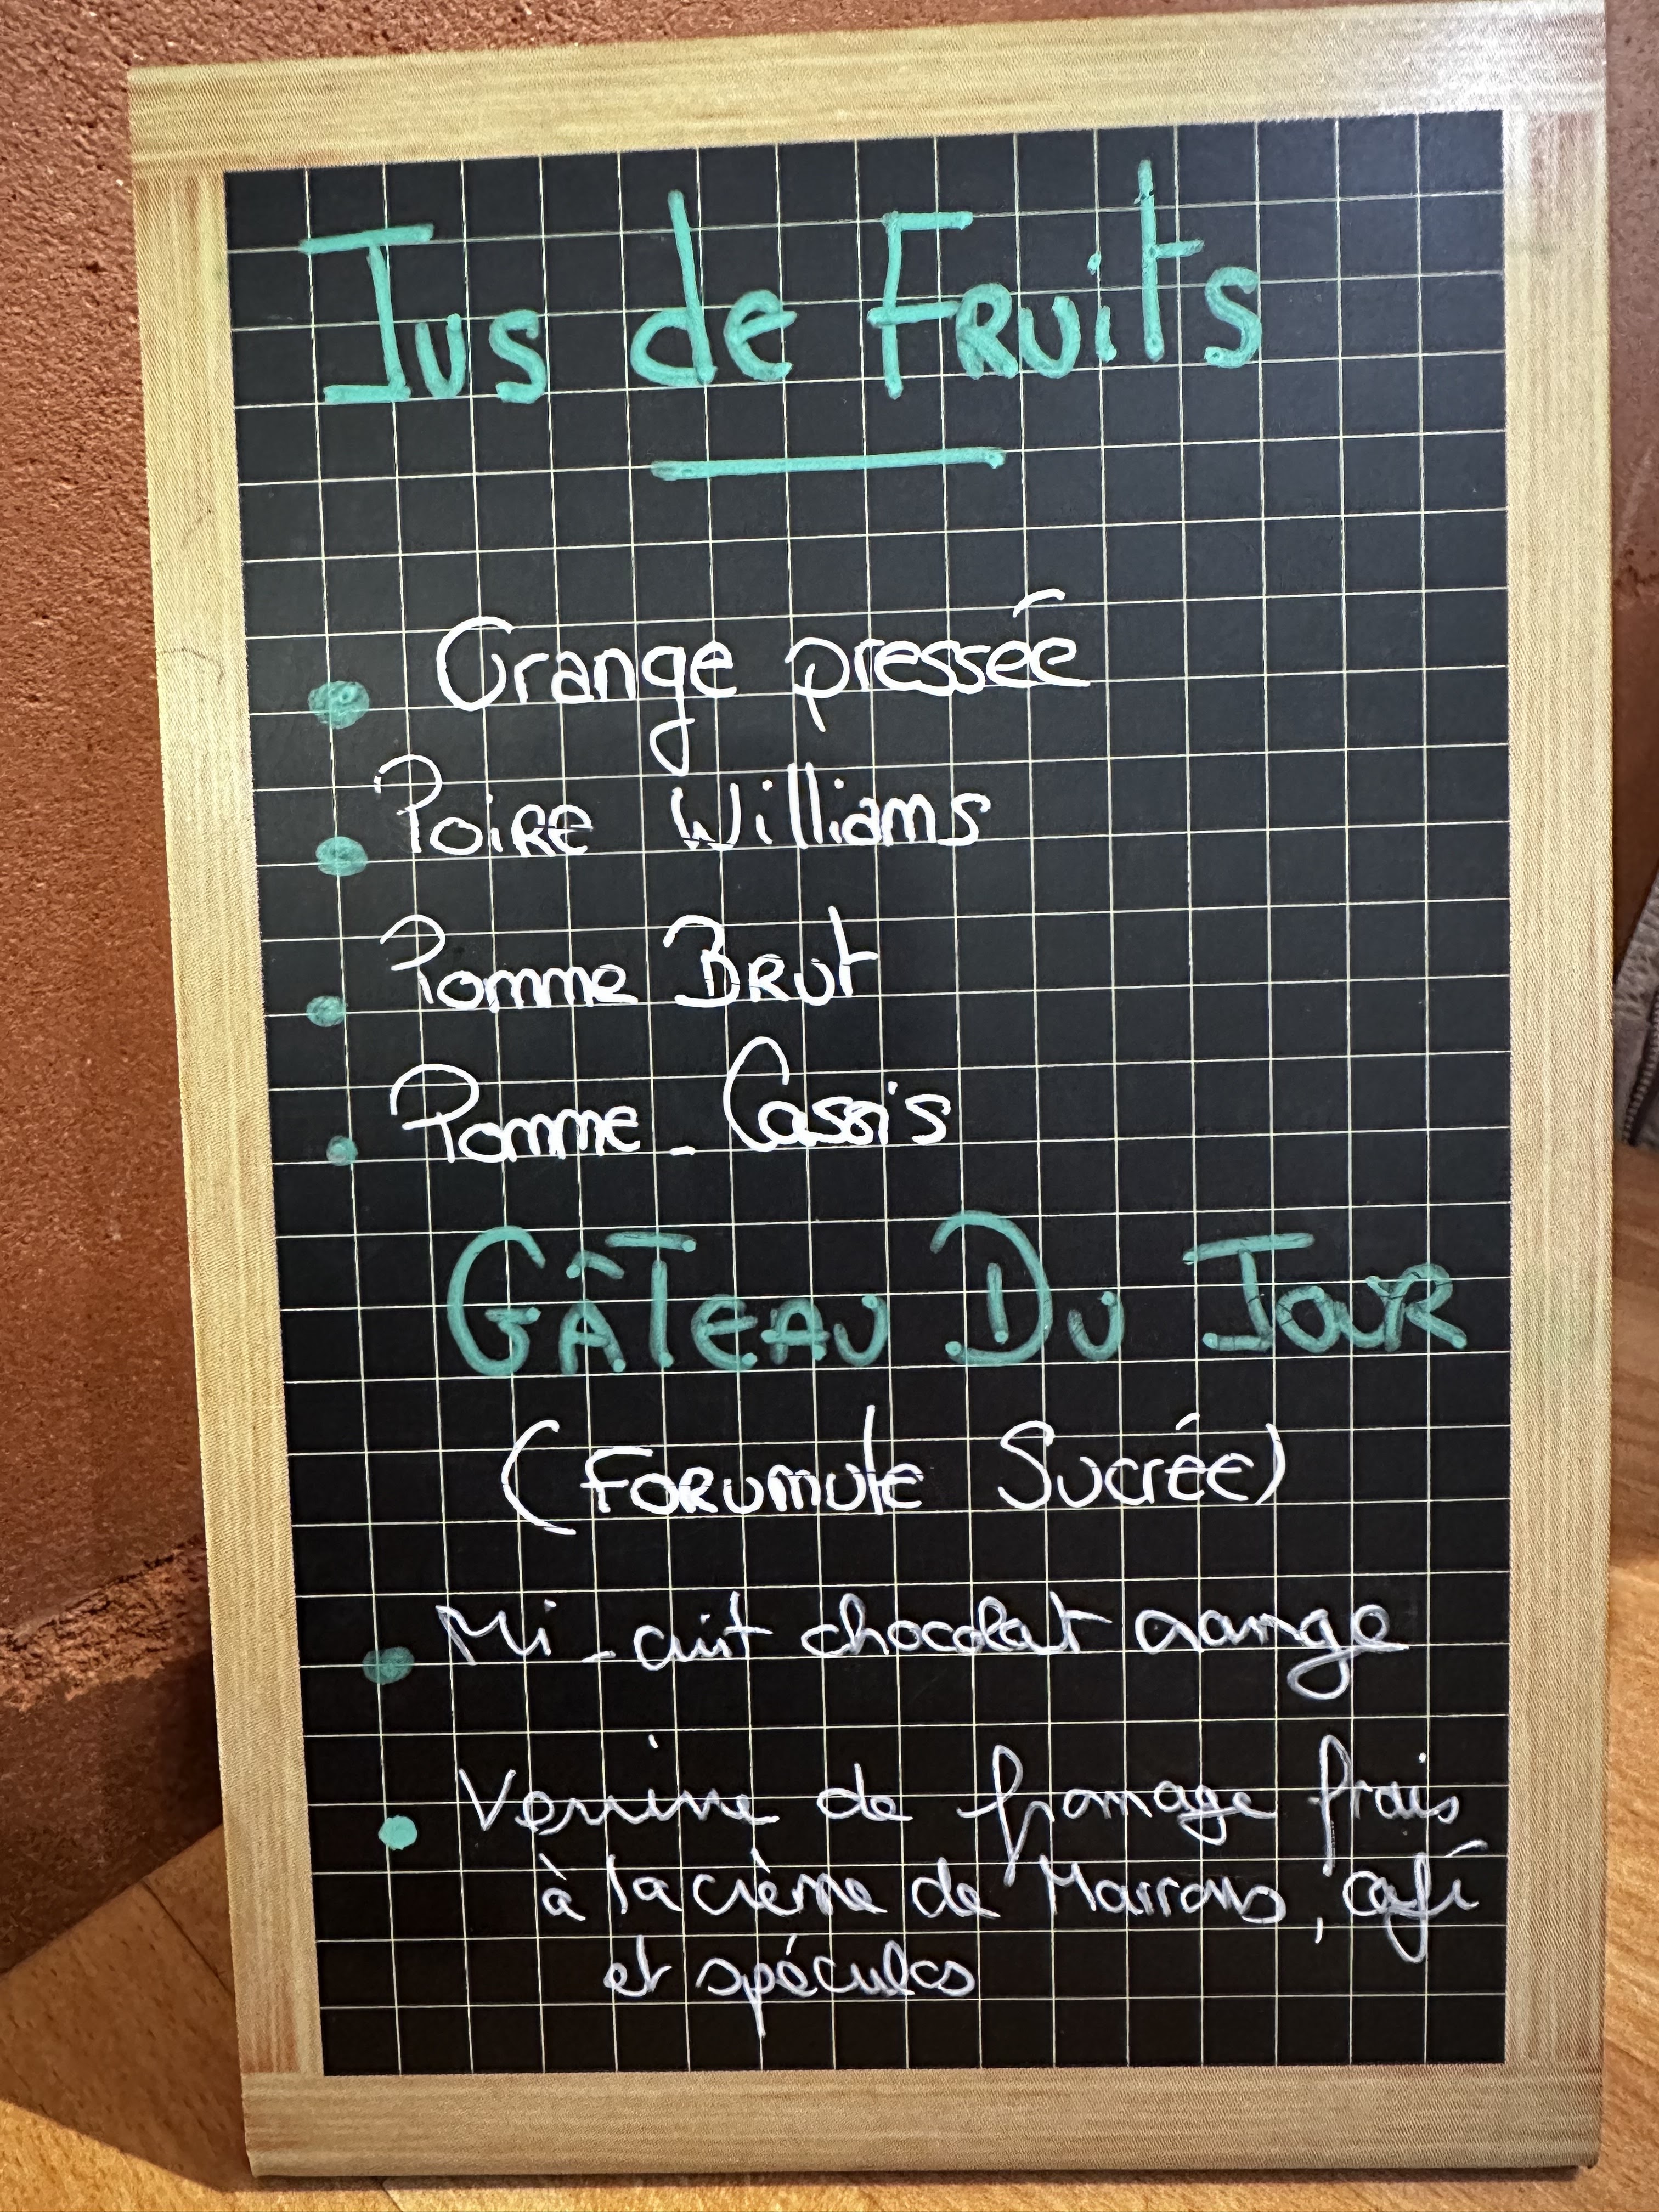 Jus de Fruits
Orange pressée
Poire Williams
Pomme Brut
Pomme - Cassis
GÂTEAU DU JOUR
(FORUMULE Sucrée)
Mi-cuit chocolat orange
Verrine de fromage frais
à la crème de Marrons, café
et spéculos